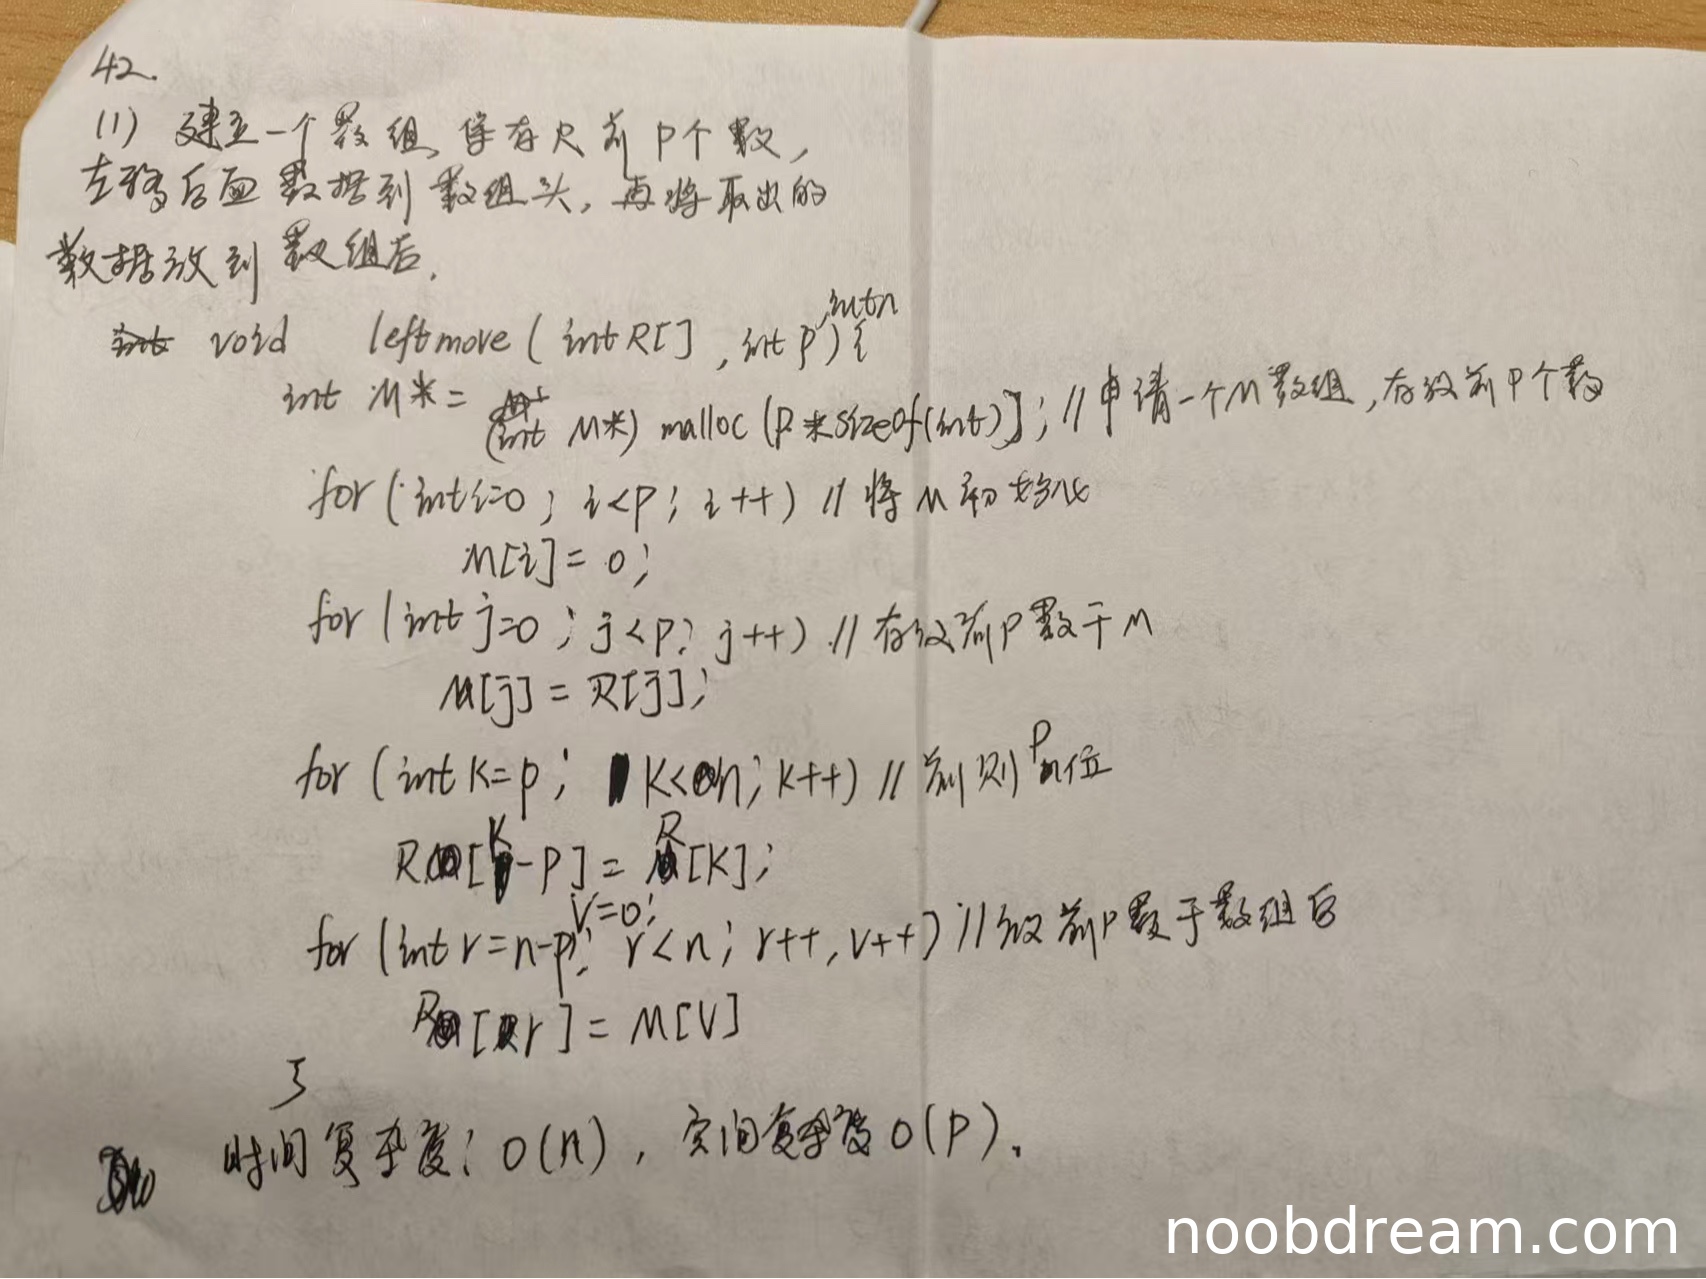 42.
(1) 建立一个数组,保存R前P个数,
左移后面数据到数组头,再将取出的
数据放到数组后.
void leftmove(int R[], int p, int n){
int M* = (int M*) malloc(P*sizeof(int)]; //申请一个M数组,存放前P个数
for(int i=0; i<p; i++) //将M初始化
M[i]=0;
for(int j=0; j<p; j++) //存放前P数于M
M[j]=R[j];
for(int k=p; k<n; k++) //前P位
R[k-p]=R[k];
for(int r=n-p, v=0; r<n; r++,v++) //放前P数于数组后
R[r]=M[v]
}
时间复杂度:O(n),空间复杂度O(p).
noobdream.com